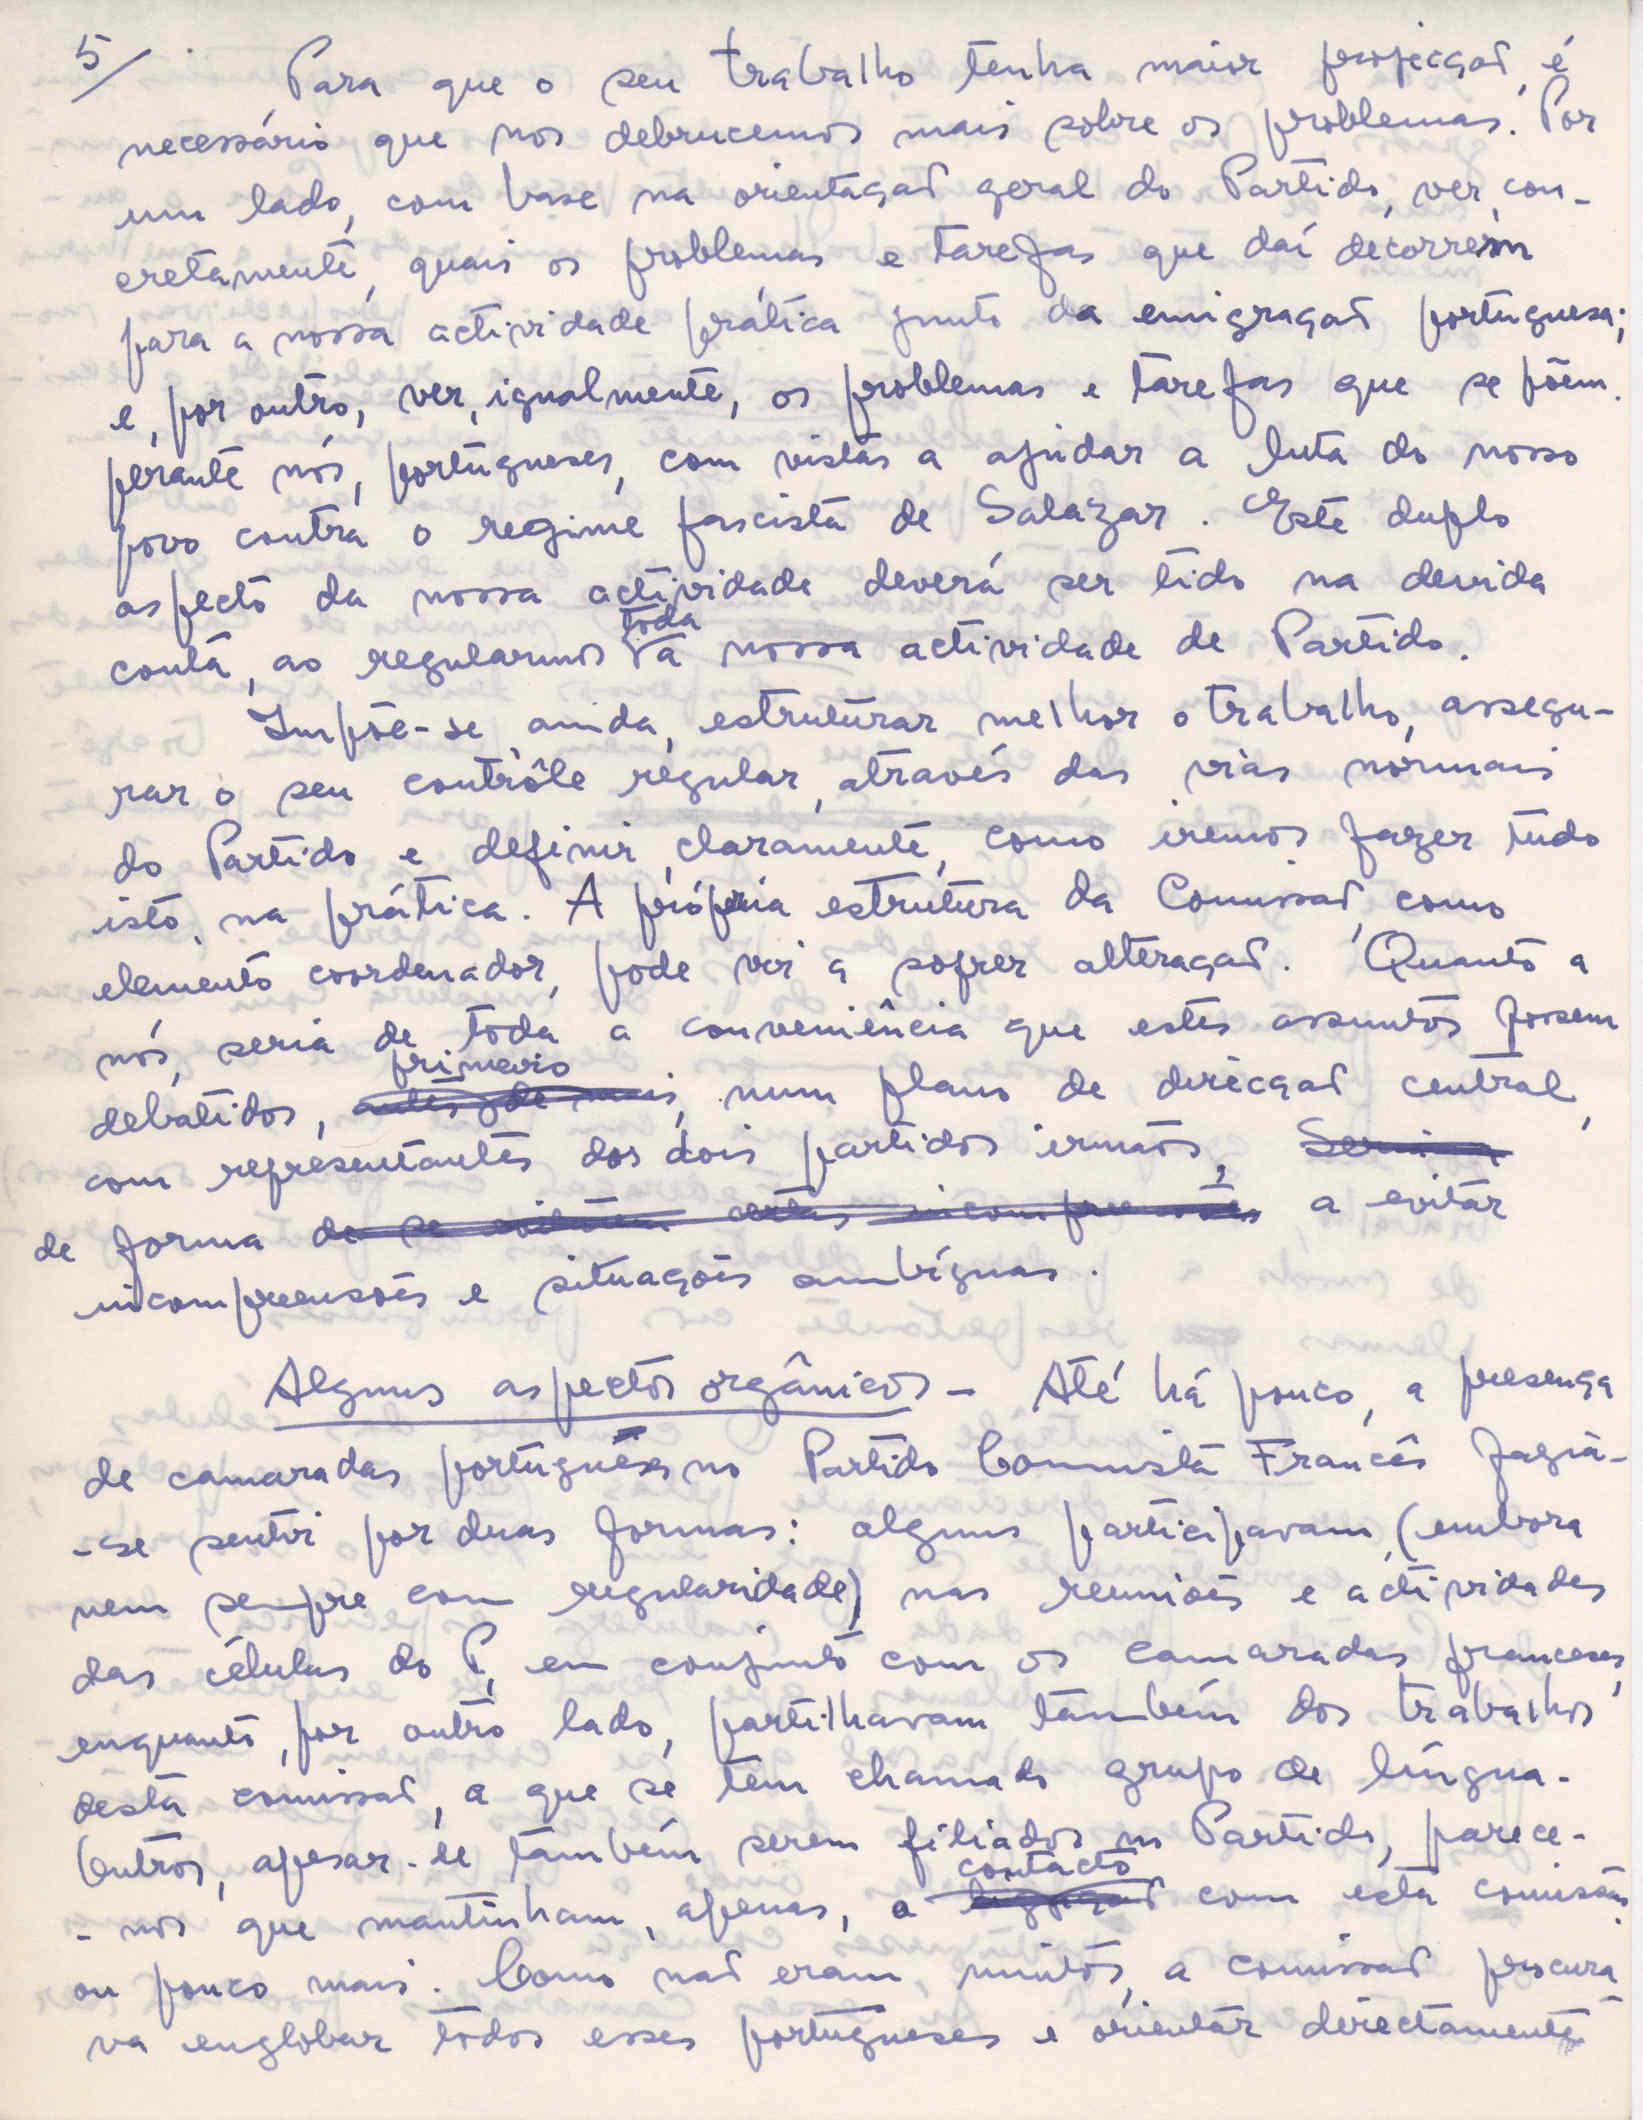 5/
Para que o seu trabalho tenha maior projecção, é
necessário que nos debrucemos mais sobre os problemas. Por
um lado, com base na orientação geral do Partido, ver, con-
cretamente, quais os problemas e tarefas que daí decorrem
para a nossa actividade prática junto da emigração portuguesa;
e, por outro, ver, igualmente, os problemas e tarefas que se põem
perante nós, portugueses, com vistas a ajudar a luta do nosso
povo contra o regime fascista de Salazar. Este duplo
aspecto da nossa actividade deverá ser tido na devida
toda
conta, ao regularmos a nossa actividade de Partido.
Impõe-se ainda, estruturar melhor o trabalho, assegu-
rar o seu contrôle regular, através das vias normais
do Partido e definir, claramente, como iremos fazer tudo
isto, na prática. A própria estrutura da Comissão, como
elemento coordenador, pode vir a sofrer alteração. Quanto a
nós, seria de toda a conveniência que estes assuntos fossem
primeiro
debatidos, antes de mais, num plano de direcção central,
com representantes dos dois partidos irmãos, Seria
de forma de se evitarem certas incompreensões a evitar
incompreensões e situações ambíguas.
Alguns aspectos orgânicos - Até há pouco, a presença
de camaradas portugueses no Partido Comunista Francês fazia-
-se sentir por duas formas: alguns participavam (embora
nem sempre com regularidade) nas reuniões e actividades
das células do P., em conjunto com os camaradas franceses,
enquanto, por outro lado, partilhavam também dos trabalhos
desta comissão, a que se tem chamado grupo de língua.
Outros, apesar de também serem filiados no Partido, parece-
contacto
-nos que mantinham, apenas, a ligação com esta comissão
ou pouco mais. Como não eram muitos, a comissão procura
va englobar todos esses portugueses e orientar directamente